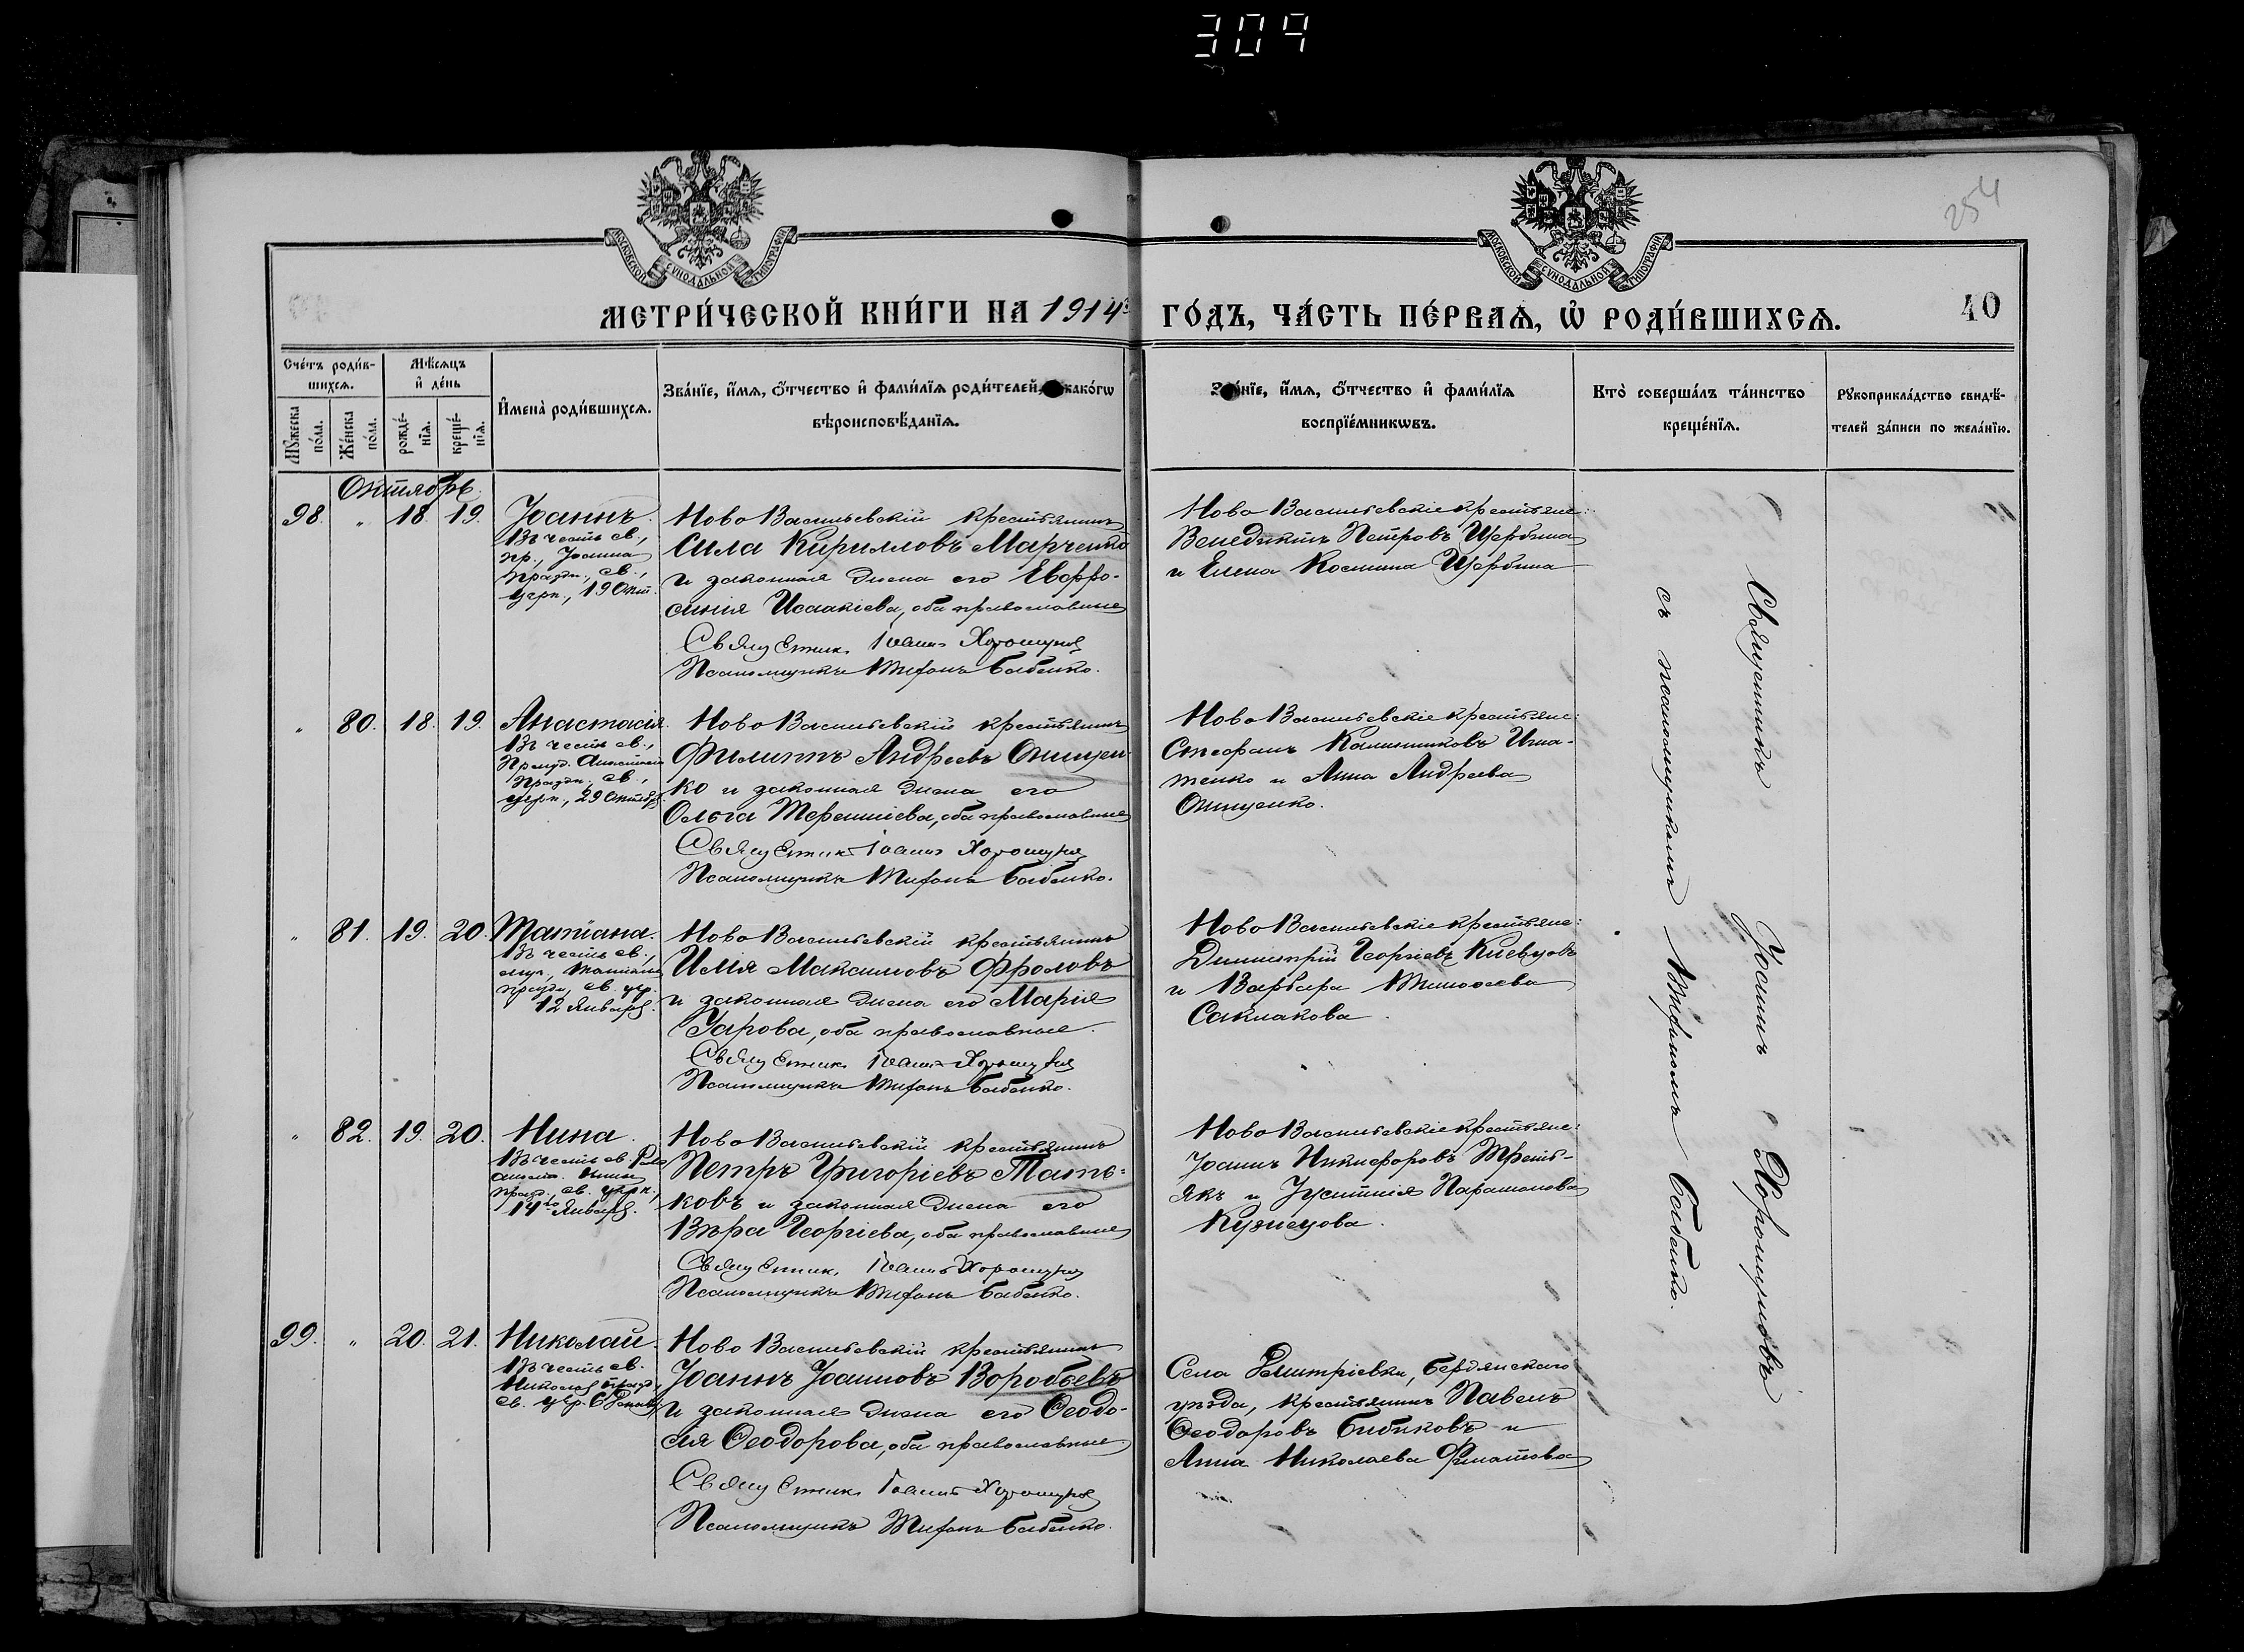 304
МОСКОВСКОЙ СѴНОДАЛЬНОЙ ТИПОГРАФІИ
МОСКОВСКОЙ СѴНОДАЛЬНОЙ ТИПОГРАФІИ
254
МЕТРИ́ЧЕСКОЙ КНИ́ГИ НА 1914й ГО́ДЪ, ЧА́СТЬ ПЕ́РВАѦ, Ѡ҆ РОДИ́ВШИХСѦ.
40
Сче́тъ роди́в-
шихсѧ.
Мѣ́сѧцъ
и҆ де́нь
Мꙋ́жеска по́ла.
Же́нска по́ла.
рожде́-нїѧ.
креще́-нїѧ.
И҆мена̀ роди́вшихсѧ.
Зва́нїе, и҆́мѧ, ѻ҆́тчество и҆ фами́лїѧ роди́телей, какóгѡ
вѣроисповѣ́данїѧ.
Зва́нїе, и҆́мѧ, ѻ҆́тчество и҆ фами́лїѧ
воспрїе́мникѡвъ.
Кто̀ соверша́лъ та́инство
креще́нїѧ.
Рꙋкоприкла́дство свидѣ́-
телей за́писи по жела́нїю.
Октябрь.
98. " 18. 19. Іоаннъ.
Въ честь св.,
пр., Іоанна
праздн., св.,
церк., 19 Окт.
Ново Васильевскій крестьянинъ
Сила Кирилловъ Марченко
и законная жена его Евфро-
синія Исаакіева, оба православные
Священник Іоанн Хорошунов
Псаломщикъ Митрофанъ Бабенко.
Ново Васильевскіе крестьяне:
Венедиктъ Петровъ Щербина
и Елена Космина Щербина
" 80. 18. 19. Анастасія.
Въ честь св.,
Препд. Анастасіи
праздн., св.,
церк., 29 Октября.
Ново Васильевскій крестьянинъ
Филиппъ Андреевъ Онищен-
ко и законная жена его
Ольга Терентіева, оба православные
Священник Іоанн Хорошунов
Псаломщикъ Митрофанъ Бабенко.
Ново Васильевскіе крестьяне:
Стефанъ Калинниковъ Игна-
тенко и Анна Андреева
Онищенко.
" 81. 19. 20. Татіана.
Въ честь св.,
муч., Татіаны
праздн., св. цер.
12 Января.
Ново Васильевскій крестьянинъ
Илія Максимовъ Фроловъ
и законная жена его Марія
Уарова, оба православные.
Священник Іоанн Хорошунов
Псаломщикъ Митрофанъ Бабенко.
Ново Васильевскіе крестьяне:
Димитрій Георгіевъ Кіевцовъ
и Варвара Тимофеева
Саклакова.
" 82. 19. 20. Нина.
Въ честь св. Равно
апостол. Нины
празд., св. церк.,
14го Января.
Ново Васильевскій крестьянинъ
Петръ Григоріевъ Тать-
ковъ и законная жена его
Вѣра Георгіева, оба православные
Священник Іоанн Хорошунов
Псаломщикъ Митрофанъ Бабенко.
Ново Васильевскіе крестьяне:
Іоаннъ Никифоровъ Треть-
якъ и Іустинія Парамонова
Кузнецова.
99. " 20. 21. Николай.
Въ честь св.
Николая празд.,
св. цер. 6 Декабр.
Ново Васильевскій крестьянинъ
Іоаннъ Іоанновъ Воробьевъ
и законная жена его Ѳеодо-
сія Ѳеодорова, оба православные
Священник Іоанн Хорошунов
Псаломщикъ Митрофанъ Бабенко.
Села Дмитріевки, Бердянскаго
уѣзда, крестьянинъ Павелъ
Ѳеодоровъ Бибиковъ и
Анна Николаева Филатова
Священникъ Іоаннъ Хорошуновъ
съ псаломщикомъ Митрофаномъ Бабенко.